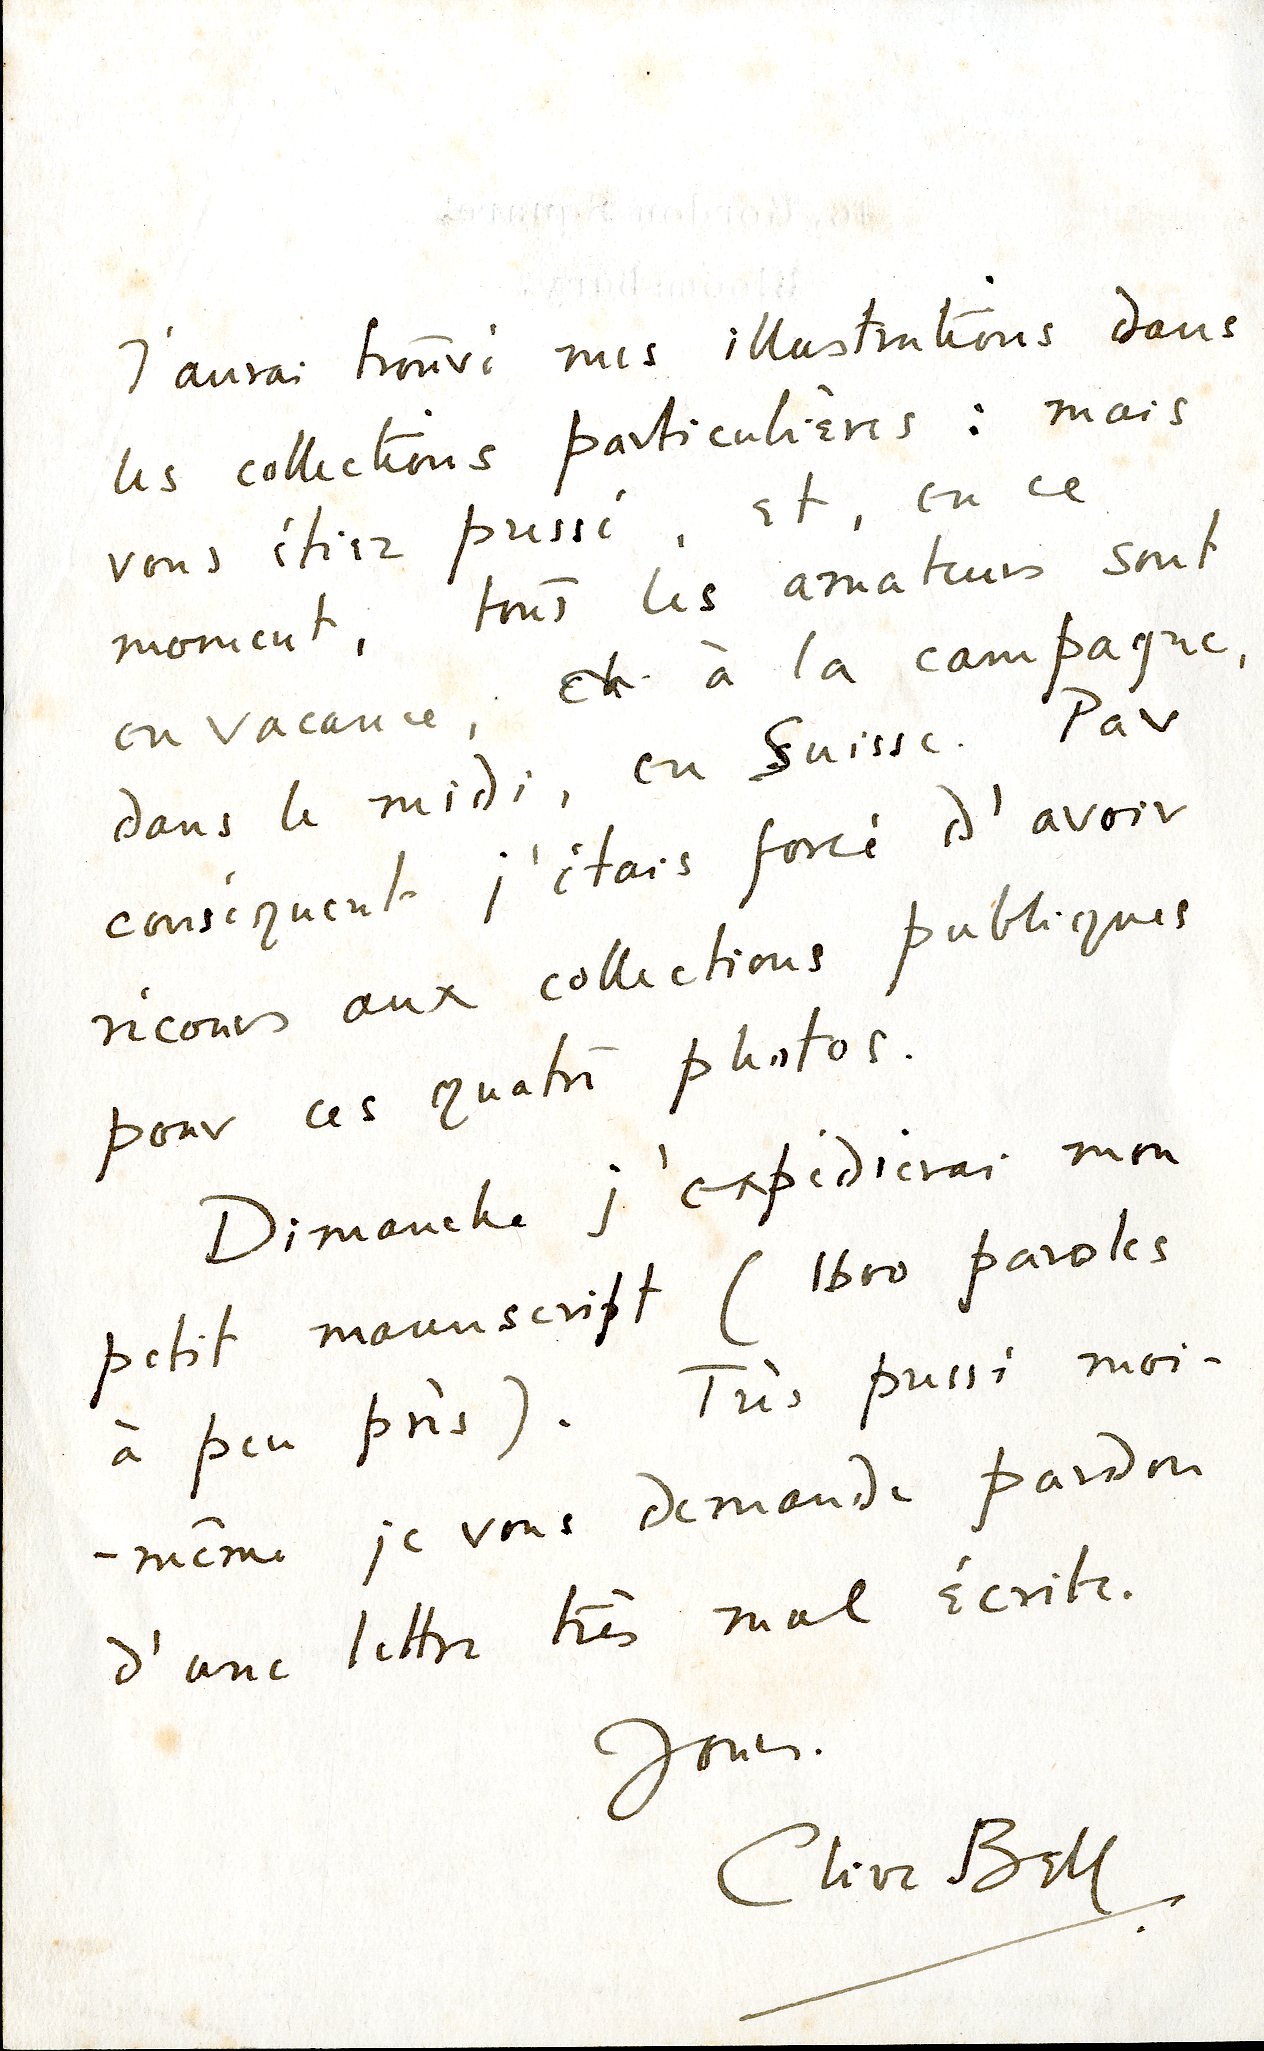 J'aurai trouvé mes illustrations dans
les collections particulières : mais
vous étiez pressé, et, en ce
moment, tous les amateurs sont
en vacance, à la campagne,
dans le midi, en Suisse. Par
conséquent j'étais forcé d'avoir
récours aux collections publiques
pour ces quatre photos.
Dimanche j'expédierai mon
petit manuscript ( paroles
à peu près). Très pressé moi-
-même je vous demande pardon
d'une lettre très mal écrite.
Clive Bell